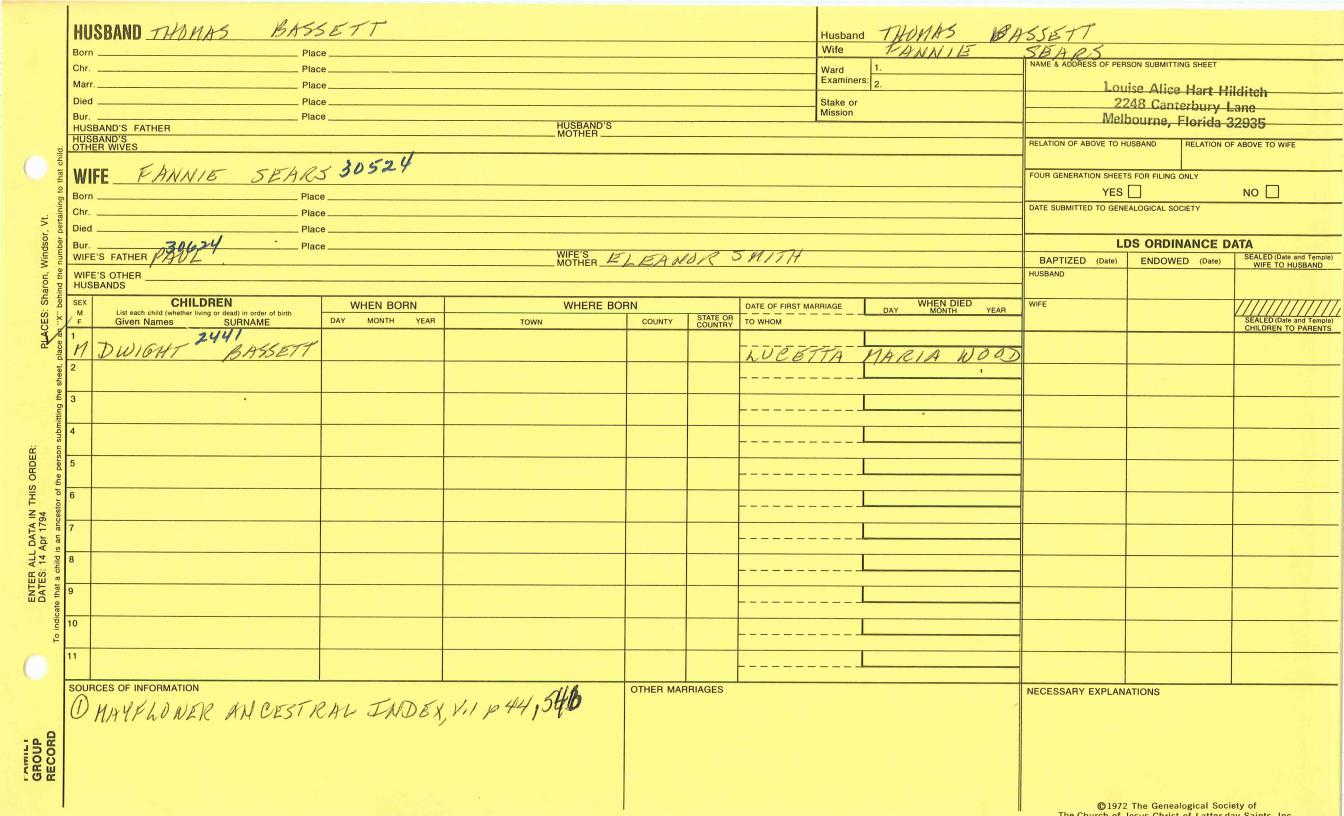 HUSBAND THOMAS BASSETT
Born Place
Chr. Place
Marr. Place
Died Place
Bur. Place
HUSBAND'S FATHER HUSBAND'S MOTHER
HUSBAND'S OTHER WIVES
Husband THOMAS BASSETT
Wife FANNIE SEARS
Ward Examiners: 1.
2.
Stake or Mission
NAME & ADDRESS OF PERSON SUBMITTING SHEET
Louise Alice Hart Hilditch
2248 Canterbury Lane
Melbourne, Florida 32935
RELATION OF ABOVE TO HUSBAND RELATION OF ABOVE TO WIFE
FOUR GENERATION SHEETS FOR FILING ONLY
YES NO
DATE SUBMITTED TO GENEALOGICAL SOCIETY
WIFE FANNIE SEARS 30524
Born Place
Chr. Place
Died Place
Bur. Place
30624
WIFE'S FATHER PAUL WIFE'S MOTHER ELEANOR SMITH
WIFE'S OTHER HUSBANDS
LDS ORDINANCE DATA
BAPTIZED (Date) ENDOWED (Date) SEALED (Date and Temple) WIFE TO HUSBAND
HUSBAND
WIFE
SEALED (Date and Temple) CHILDREN TO PARENTS
SEX M F
CHILDREN
List each child (whether living or dead) in order of birth
Given Names SURNAME
WHEN BORN
DAY MONTH YEAR
WHERE BORN
TOWN COUNTY STATE OR COUNTRY
DATE OF FIRST MARRIAGE
TO WHOM
WHEN DIED
DAY MONTH YEAR
1 2441
M DWIGHT BASSETT LUCETTA MARIA WOOD
2
3
4
5
6
7
8
9
10
11
SOURCES OF INFORMATION
① MAYFLOWER ANCESTRAL INDEX, V.1 p 44, 546
OTHER MARRIAGES
NECESSARY EXPLANATIONS
©1972 The Genealogical Society of
The Church of Jesus Christ of Latter-day Saints, Inc.
ENTER ALL DATA IN THIS ORDER:
DATES: 14 Apr 1794
PLACES: Sharon, Windsor, Vt.
To indicate that a child is an ancestor of the person submitting the sheet, place an "X" behind the number pertaining to that child.
FAMILY
GROUP
RECORD